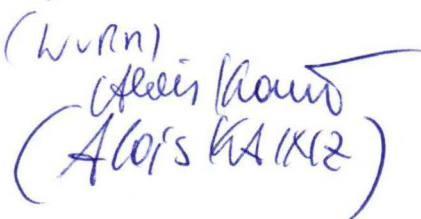 (WURM)
Alois Kainz
(Alois KAINZ)